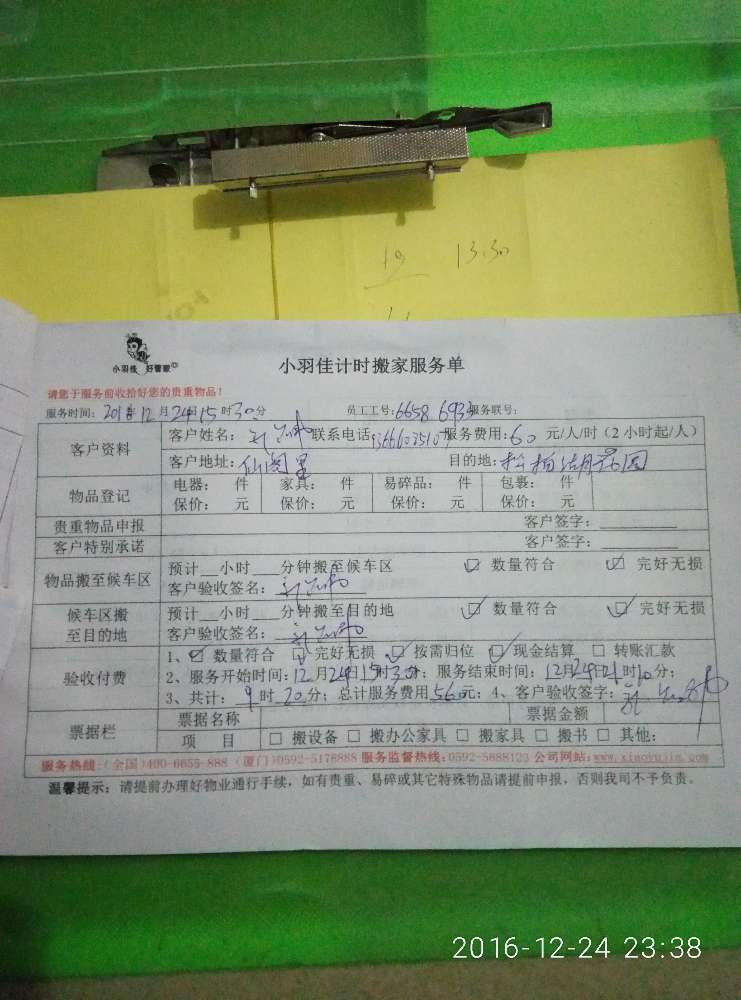 19 13.30
小羽佳 好管家
小羽佳计时搬家服务单
请您于服务前收拾好您的贵重物品！
服务时间：2016年12月24日15时30分 员工工号：6658 6933 服务联号：
客户资料 客户姓名： 联系电话 服务费用：60 元/人/时（2小时起/人）
客户地址：仙阁里 目的地：松柏湖花园
物品登记 电器： 件 家具： 件 易碎品： 件 包裹： 件
保价： 元 保价： 元 保价： 元 保价： 元
贵重物品申报 客户签字：
客户特别承诺 客户签字：
物品搬至候车区 预计__小时___分钟搬至候车区 ☑ 数量符合 ☑ 完好无损
客户验收签名：
候车区搬至目的地 预计__小时___分钟搬至目的地 ☑ 数量符合 ☑ 完好无损
客户验收签名：
验收付费 1、☑ 数量符合 ☑ 完好无损 ☑ 按需归位 ☑ 现金结算 □ 转账汇款
2、服务开始时间：12月24日15时30分；服务结束时间：12月24日 时10分；
3、共计：9时20分；总计服务费用560元；4、客户验收签字：
票据栏 票据名称 票据金额
项 目 □ 搬设备 □ 搬办公家具 □ 搬家具 □ 搬书 □ 其他：
服务热线：(全国)400-6655-888 (厦门)0592-5178888 服务监督热线：0592-5688123 公司网站：www.xiaoyujia.com
温馨提示：请提前办理好物业通行手续，如有贵重、易碎或其它特殊物品请提前申报，否则我司不予负责。
2016-12-24 23:38